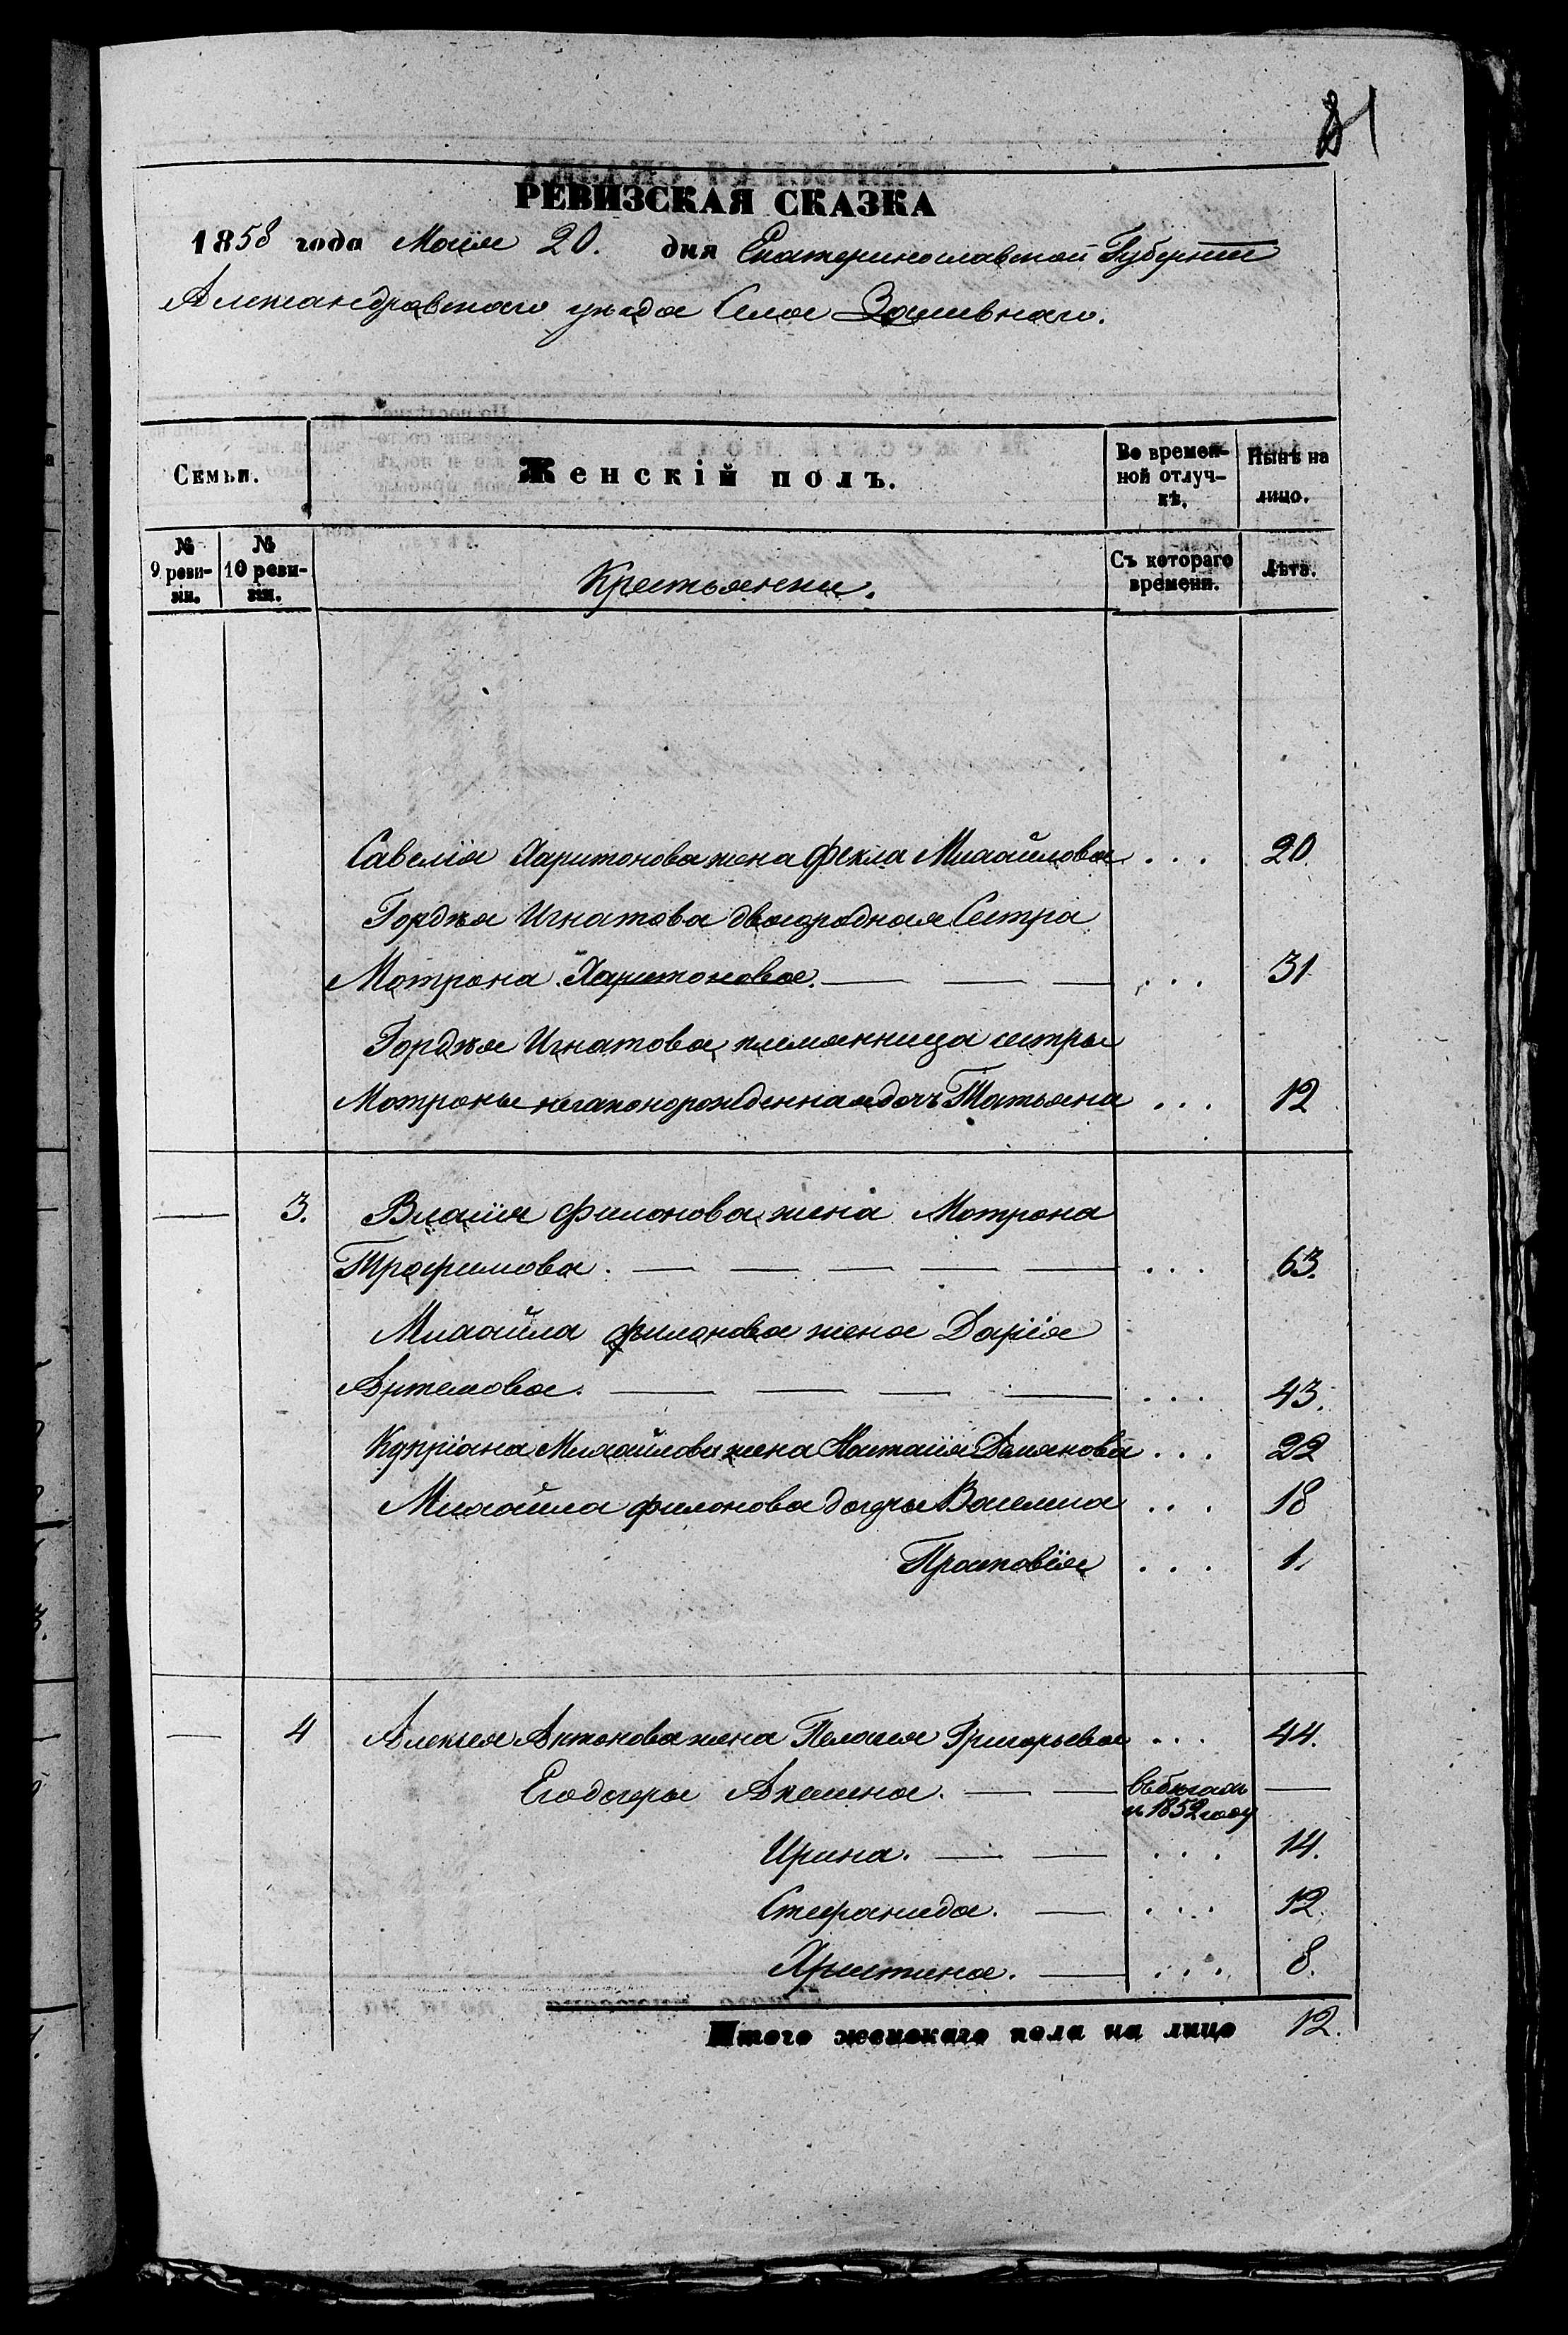 81
РЕВИЗСКАЯ СКАЗКА
1858 года Маія 20. дня Екатеринославской Губерніи
Александровскаго уѣзда Села Заливнаго.
Семьи.
Женскій полъ.
Во времен-
ной отлуч-
кѣ.
Нынѣ на
лицо.
№
9 реви-
зіи.
№
10 реви-
зіи.
Крестьянки.
Съ котораго
времени.
Лѣта.
Савелія Харитонова жена Фекла Михайлова . . . 20
Гордѣя Игнатова двоюродная Сестра
Мотрона Харитонова. — — — . . . 31
Гордѣя Игнатова племянница сестры
Мотроны незаконорожденная дочь Татьяна . . . 12
— 3. Власія Филонова жена Мотрона
Трофимова. — — — — — . . . 63.
Михайла Филонова жена Дарія
Артемова. — — — — . . . 43.
Купріана Михайлова жена Настасія Демянова . . . 22
Михайла Филонова дочери Васелиса . . . 18
Прасковія . . . 1.
— 4 Алексея Антонова жена Пелагея Григорьева . . . 44.
Его дочеры Акилина. — — въ бѣгахъ —
с 1852 году
Ирина. — — . . . 14.
Стефанида. — . . . 12.
Христина. — . . . 8.
Итого женскаго пола на лицо 12.